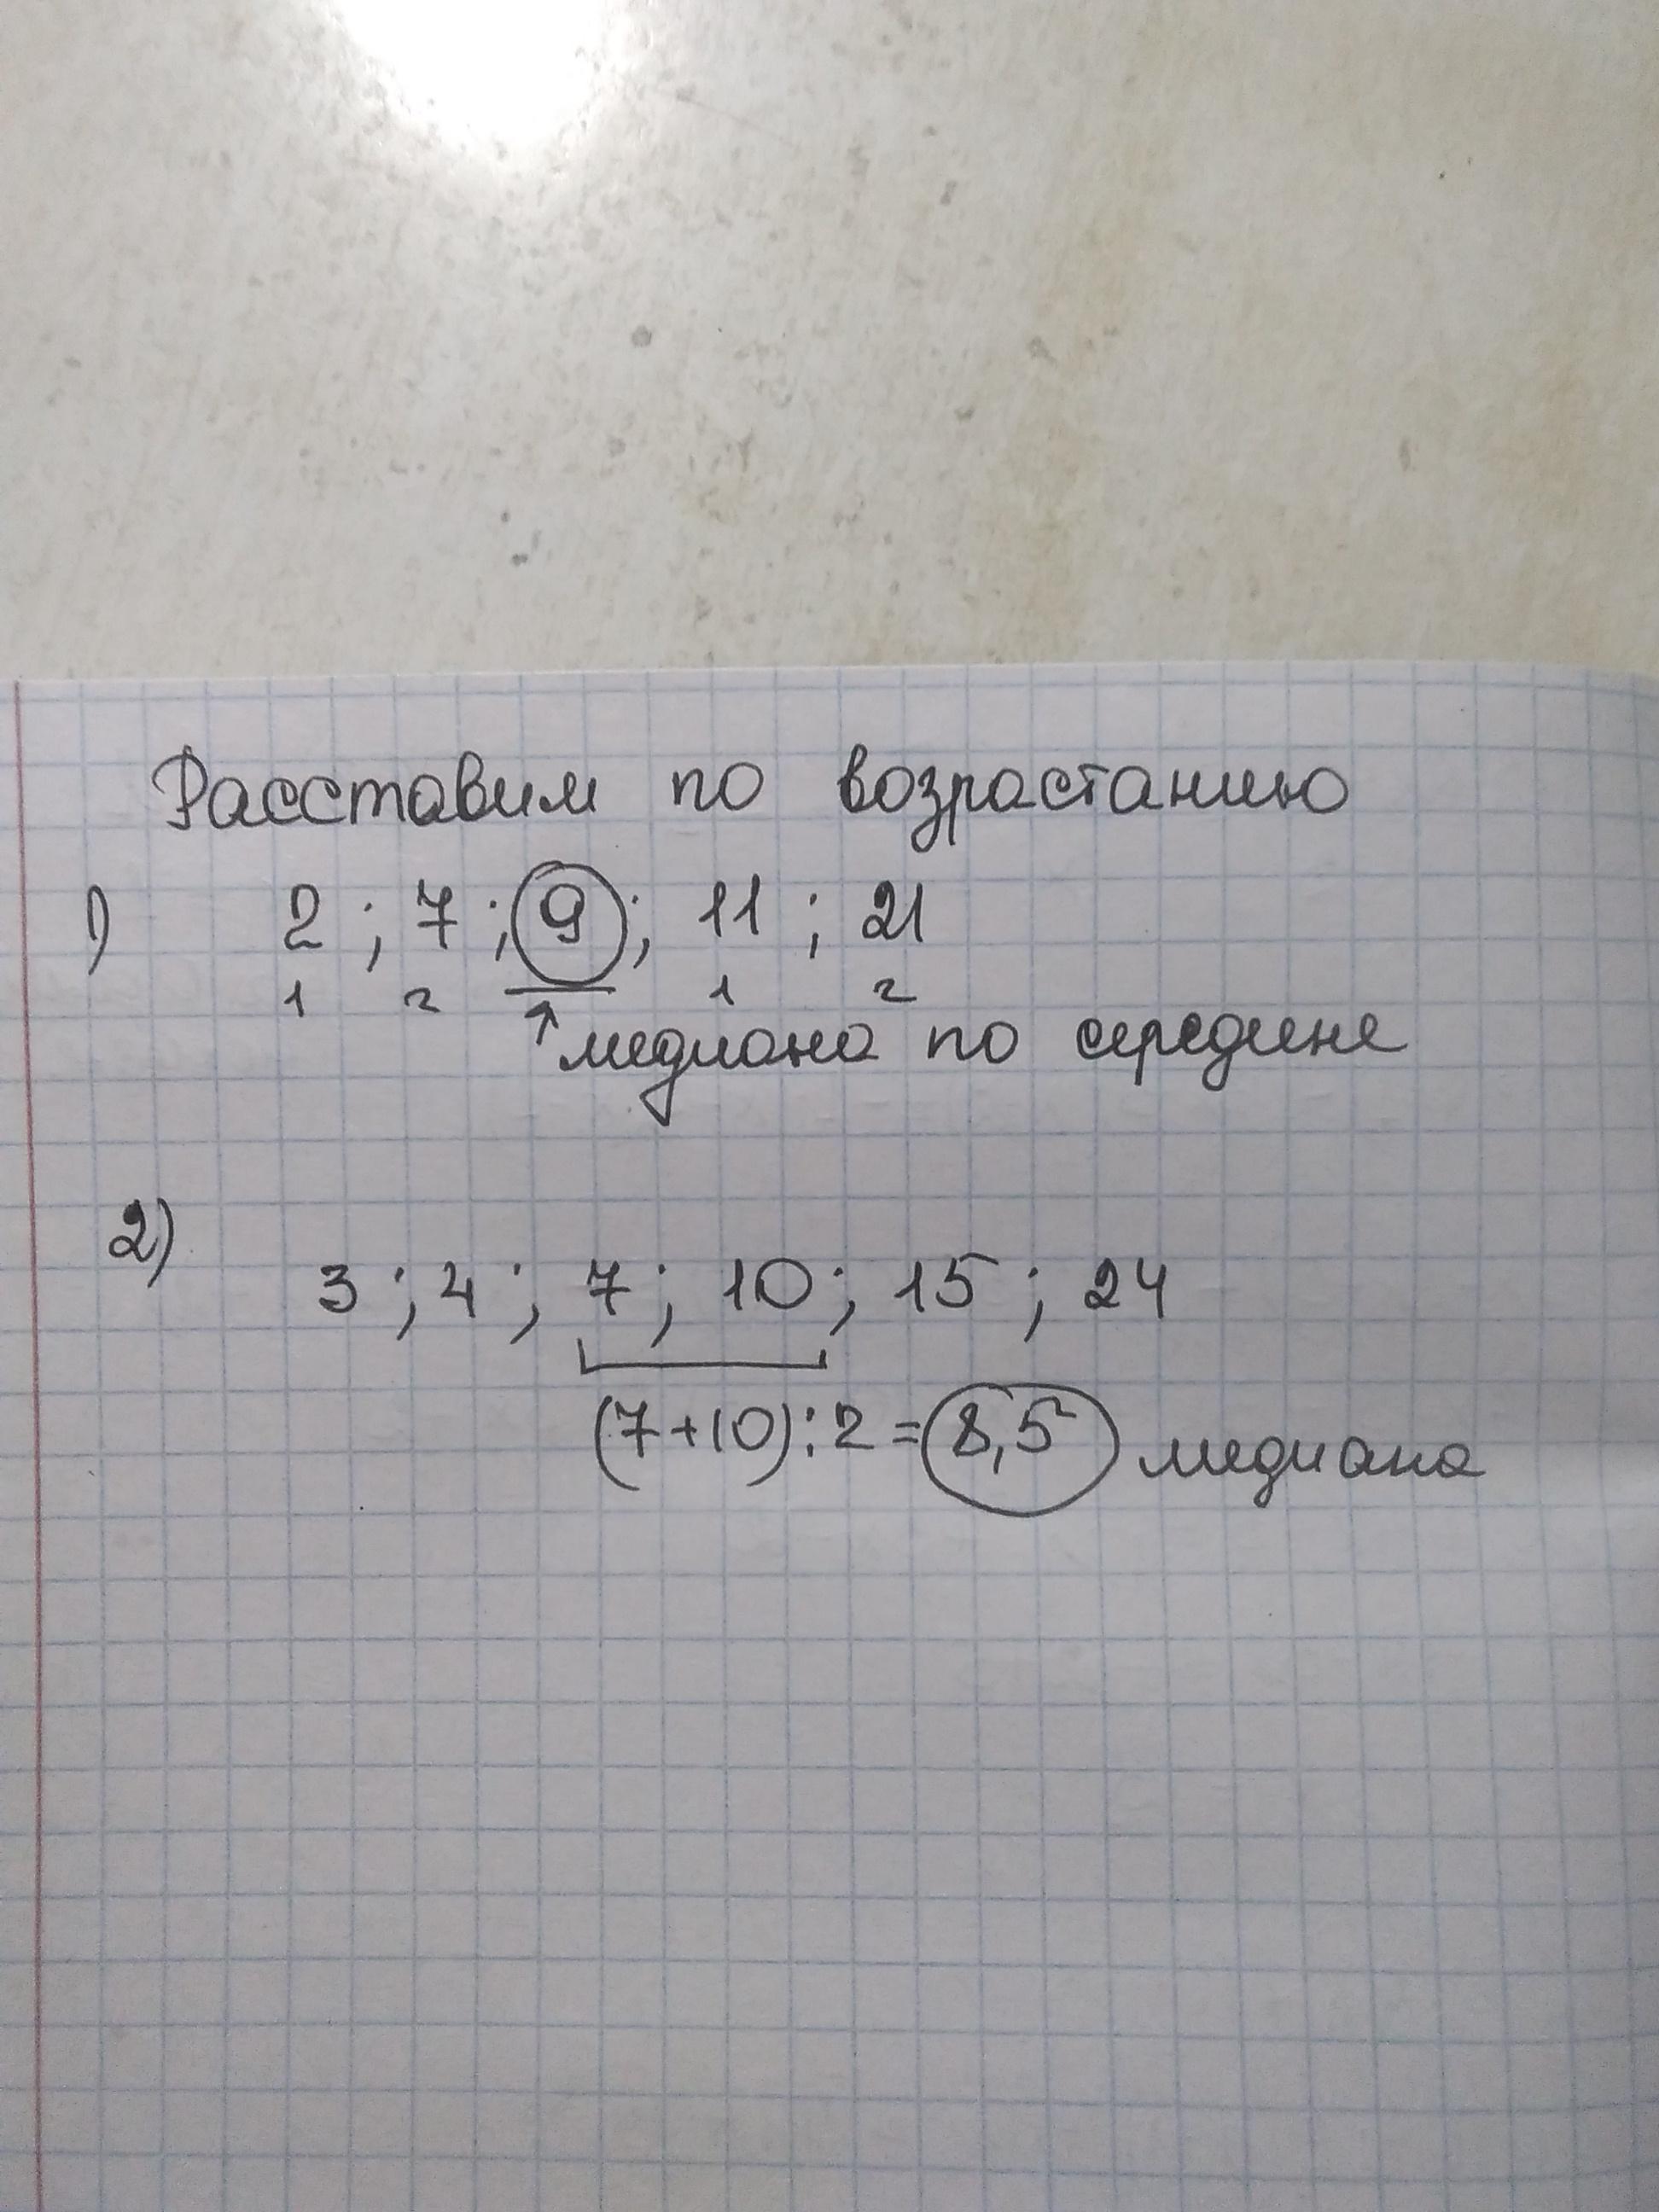 Расставим по возрастанию
1) 2 ; 7 ; 9 ; 11 ; 21
1 2 1 2
↑ медиана по середине
2)
3 ; 4 ; 7 ; 10 ; 15 ; 24
(7+10):2=8,5 медиана